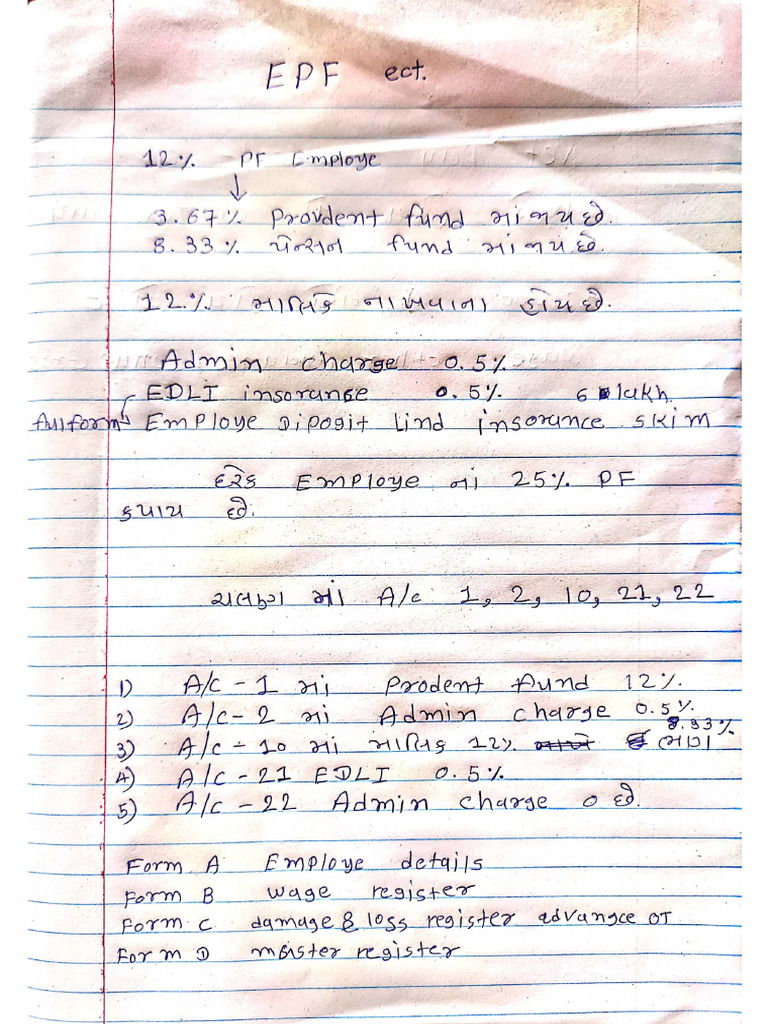 EPF ect.
12% PF Employe
↓
3.67% Provdent fund માં જાય છે.
8.33% પેન્સન fund માં જાય છે.
12.% માલિકે નાખવાના હોય છે.
Admin charge 0.5%
EDLI insoranse 0.5% 6 lakh.
fullform Employe Diposit lind insorance skim
દરેક Employe નાં 25% PF
કપાય છે.
ચલણ માં A/c 1, 2, 10, 21, 22
1) A/c - 1 માં Prodent fund 12%.
2) A/c - 2 માં Admin charge 0.5%
3) A/c - 10 માં માલિક 12% 8.33% ભાગ
4) A/c - 21 EDLI 0.5%
5) A/c - 22 Admin charge 0 છે.
Form A Employe details
Form B wage register
Form C damage & loss register advangce OT
Form D master register